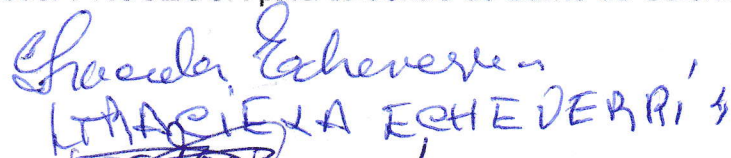 Graciela Echeverri
GRACIELA ECHEVERRI